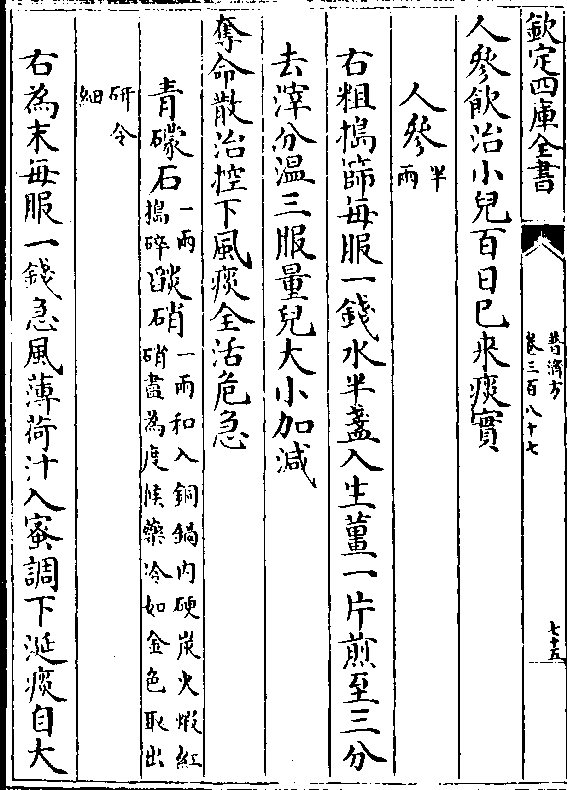 欽定四庫全書
普濟方
卷三百八十七
七十五
人參飲治小兒百日已來痰實
人參半兩
右粗搗篩每服一錢水半盞入生薑一片煎至三分
去滓分温三服量兒大小加減
奪命散治控下風痰全活危急
青礞石一兩搗碎 燄硝一兩和入銅鍋内硬炭火煅紅硝盡為度候藥冷如金色取出
研令細
右為末每服一錢急風薄荷汁入蜜調下涎痰自大